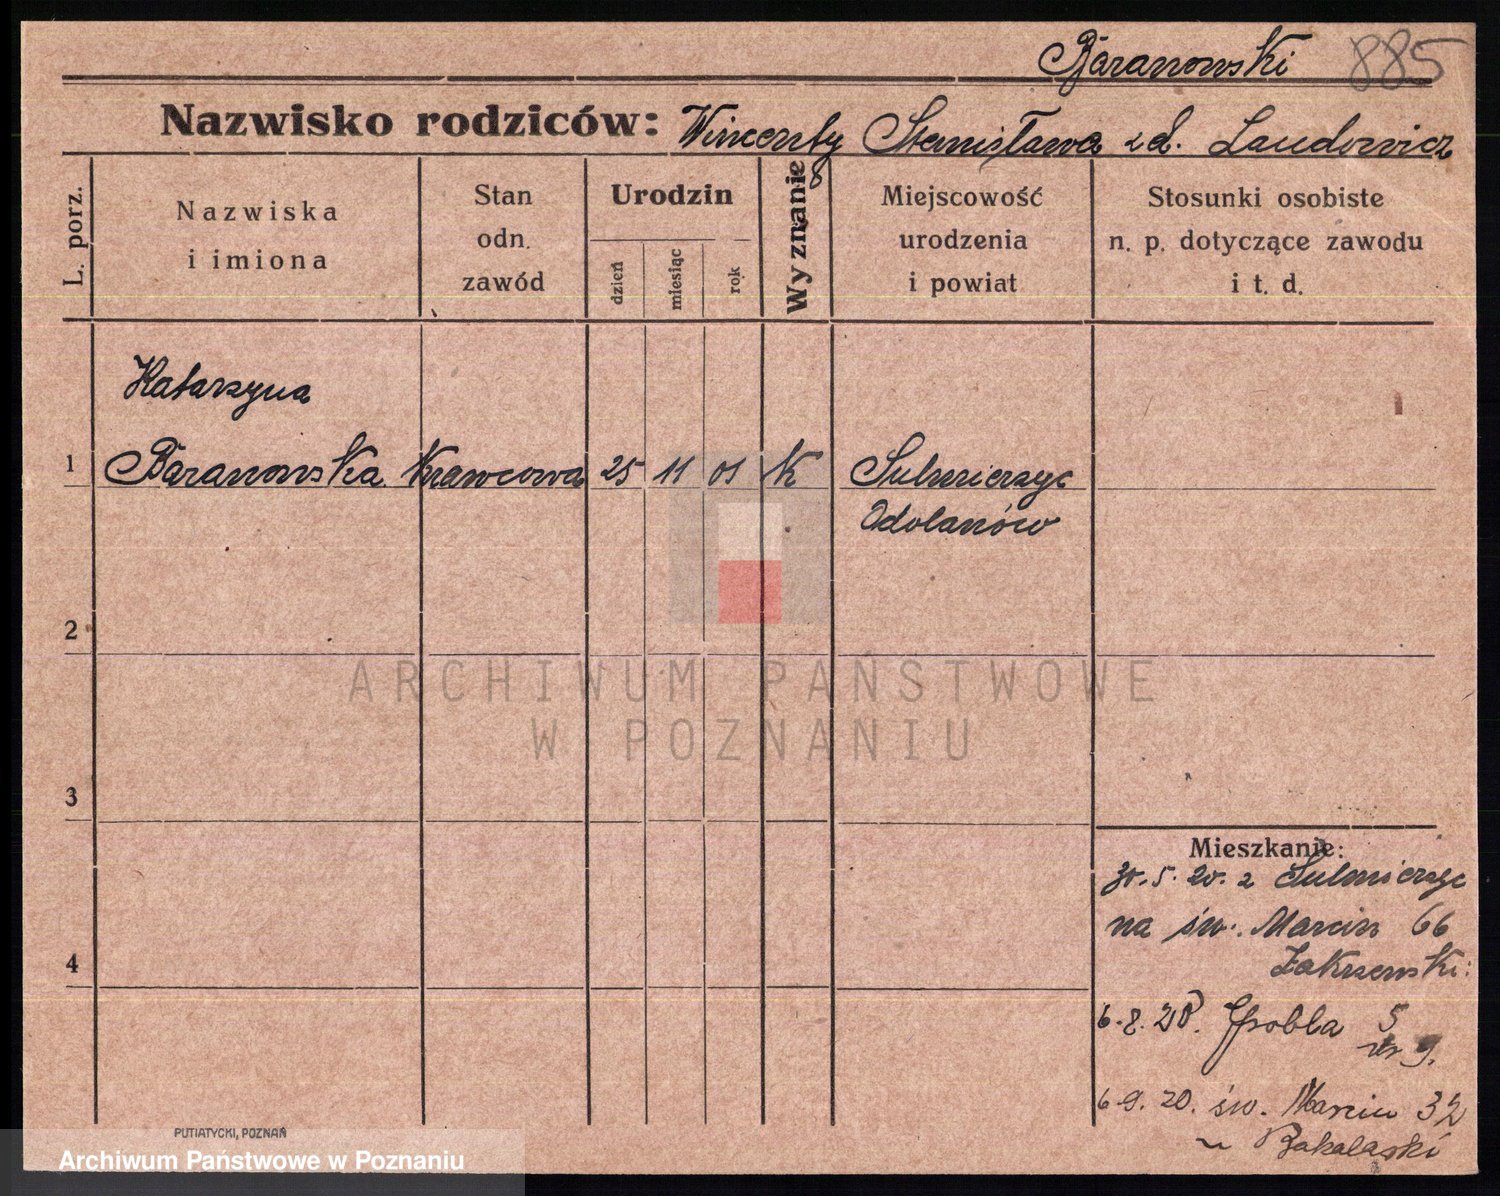 Baranowski 885
Nazwisko rodziców: Wincenty Stanisława z d. Laudowicz
L. porz.
Nazwiska
i imiona
Stan
odn.
zawód
Urodzin
dzień
miesiąc
rok
Wyznanie
Miejscowość
urodzenia
i powiat
Stosunki osobiste
n. p. dotyczące zawodu
i t. d.
Katarzyna
1 Baranowska Krawcowa 25 11 01 K Sulmierzyc
Odolanów
2
3
4
Mieszkanie:
30.5.20. z Sulmierzyc
na św. Marcin 66
Zakrzewski:
6.8.20. Grobla 5
9.
6.9.20. św. Marcin 32
u Bakalaski
PUTIATYCKI, POZNAŃ
ARCHIWUM PAŃSTWOWE
W POZNANIU
Archiwum Państwowe w Poznaniu